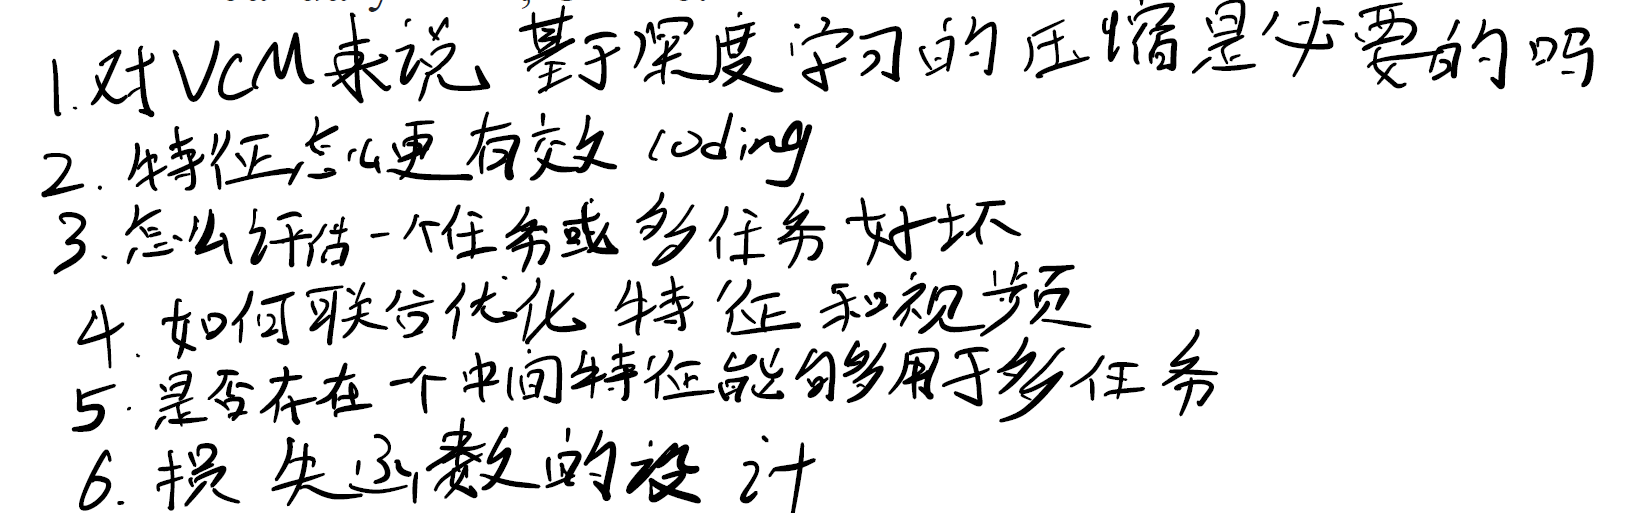 1. 对VCM来说 基于深度学习的压缩是必要的吗
2. 特征怎么更有效 coding
3. 怎么评估一个任务或多任务好坏
4. 如何联合优化 特征和视频
5. 是否存在一个中间特征能够多用于多任务
6. 损失函数的设计